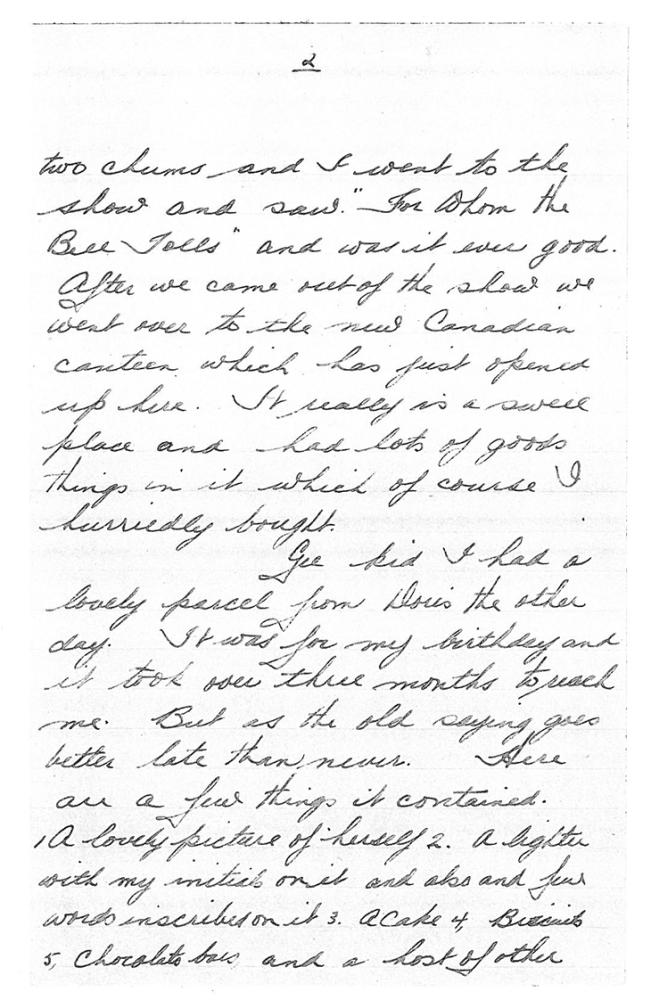 2
two chums and I went to the
show and saw. "For Whom the
Bell Tolls" and was it ever good.
After we came out of the show we
went over to the new Canadian
canteen which has just opened
up here. It really is a swell
place and had lots of goods
things in it which of course I
hurriedly bought.
Gee kid I had a
lovely parcel from Doris the other
day. It was for my birthday and
it took over three months to reach
me. But as the old saying goes
better late than never. Here
are a few things it contained.
1 A lovely picture of herself 2. A lighter
with my initials on it and also and few
words inscribed on it 3. A Cake 4, Biscuits
5, Chocolate bars, and a host of other